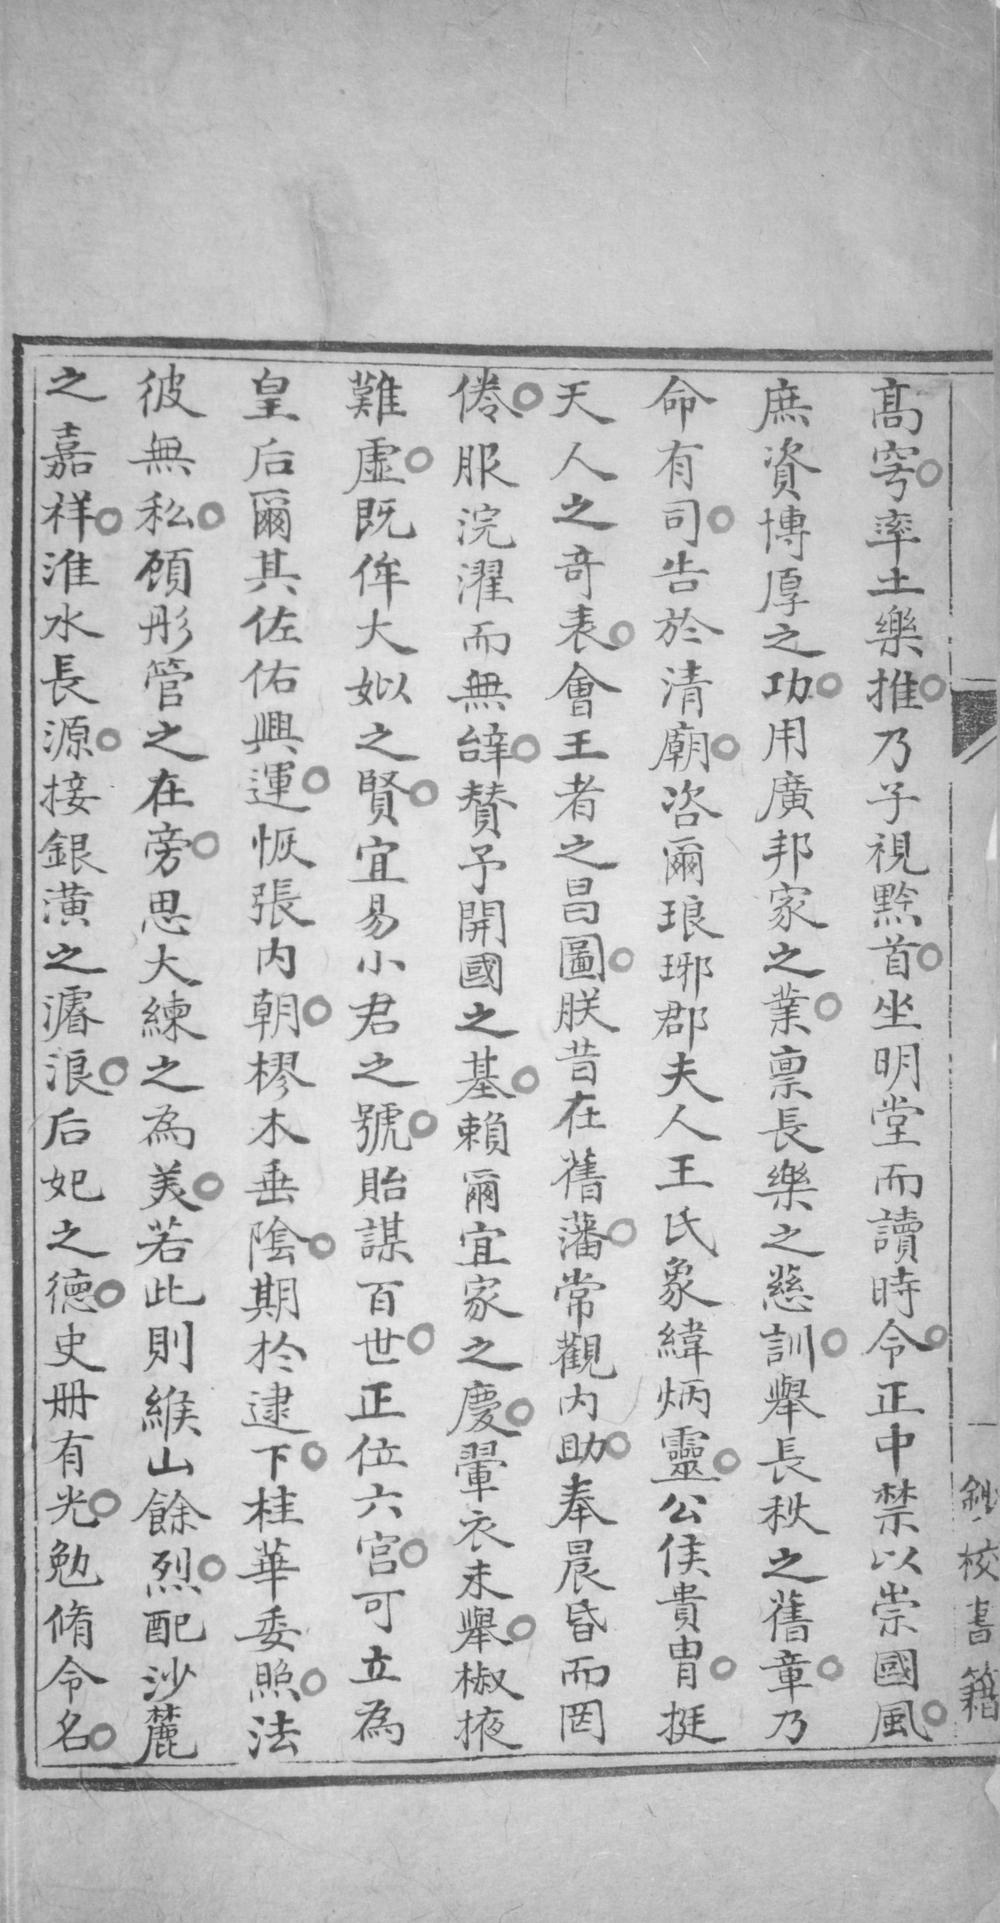 高穹率土樂推乃子視黔首坐明堂而讀時令正中禁以崇國風
庶資博厚之功用廣邦家之業禀長樂之慈訓舉長秋之舊章乃
命有司告於清廟咨爾琅琊郡夫人王氏象緯炳靈公侯貴胄挺
天人之竒表會王者之昌圖朕昔在舊藩常觀内助奉晨昏而罔
倦服浣濯而無辤賛予開國之基賴爾宜家之慶翬衣未舉椒掖
難虛既侔大姒之賢宜易小君之號貽謀百世正位六宫可立為
皇后爾其佐佑興運恢張内朝樛木垂陰期於逮下桂華委照法
彼無私顧彤管之在旁思大練之為美若此則緱山餘烈配沙麓
之嘉祥淮水長源接銀潢之濬浪后妃之德史册有光勉脩令名
鈔校書籍